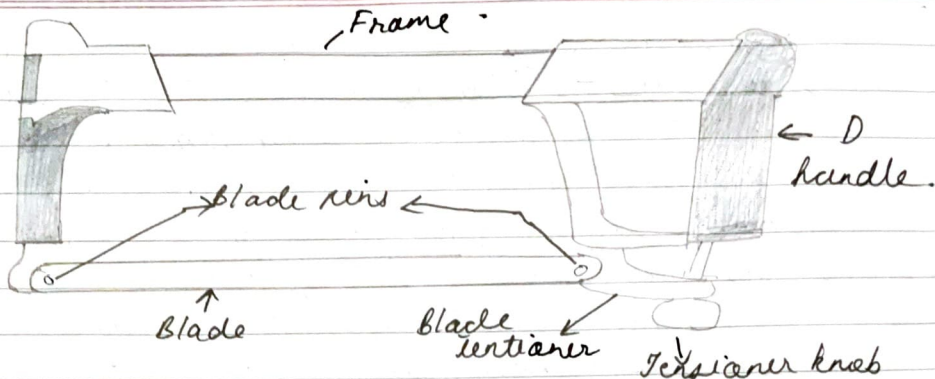 Frame
D
handle.
Blade pins
Blade
Blade
tentioner
Tensioner knob